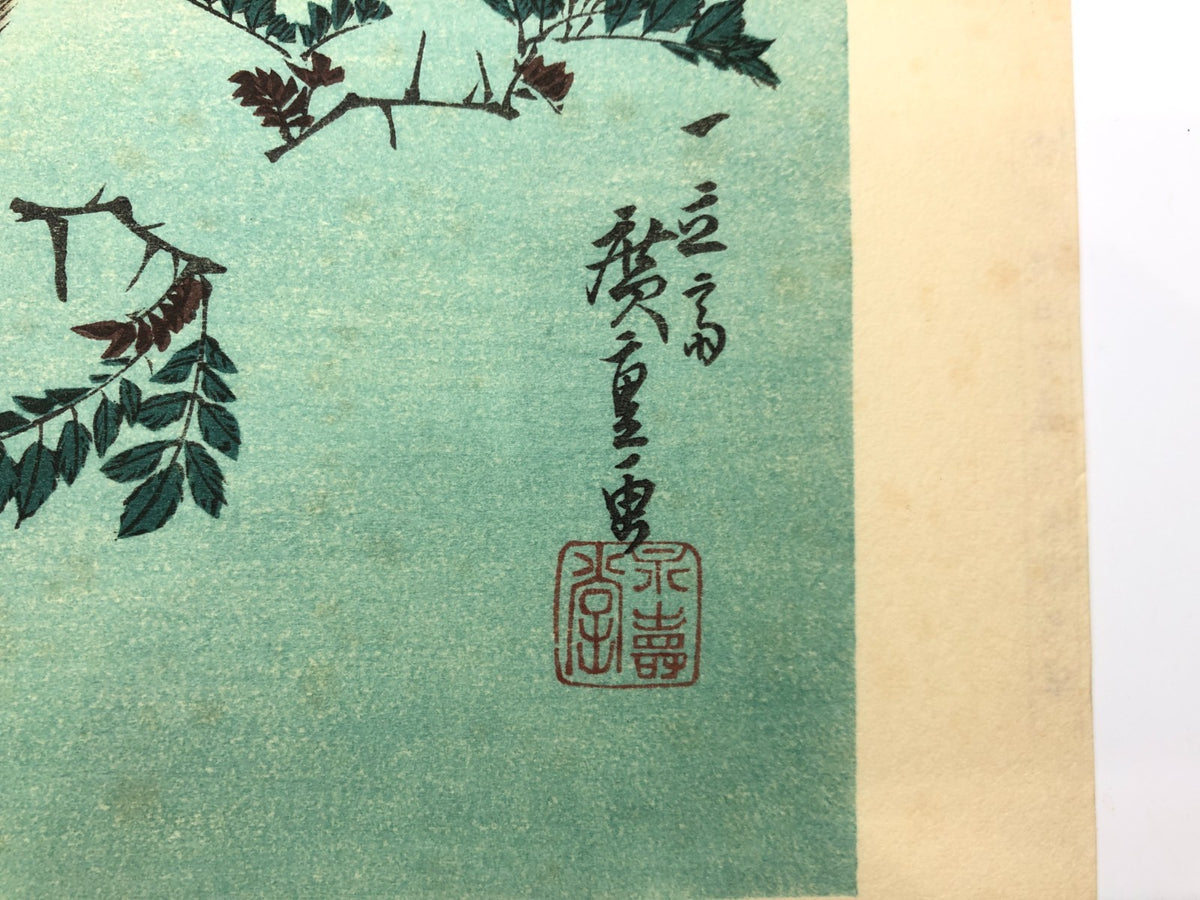 一立齋
廣重画
永壽
堂